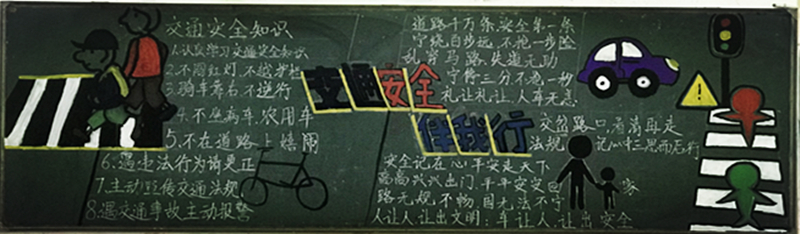 交通安全知识
1.认真学习交通安全知识
2.不闯红灯,不越护栏
3.骑车靠右不逆行
4.不坐病车,农用车
5.不在道路上嬉闹
6.遇违法行为请更正
7.主动宣传交通法规
8.遇交通事故主动报警
交通安全
伴我行
道路千万条,安全第一条
宁绕百步远,不抢一步险
乱穿马路,失道无助
宁停三分不抢一秒
礼让礼让,人车无恙
交岔路口,看清再走
法规 记心中三思而后行
安全记在心平安走天下
高高兴兴出门,平平安安回家
路无规不畅,国无法不宁
人让人,让出文明;车让人,让出安全